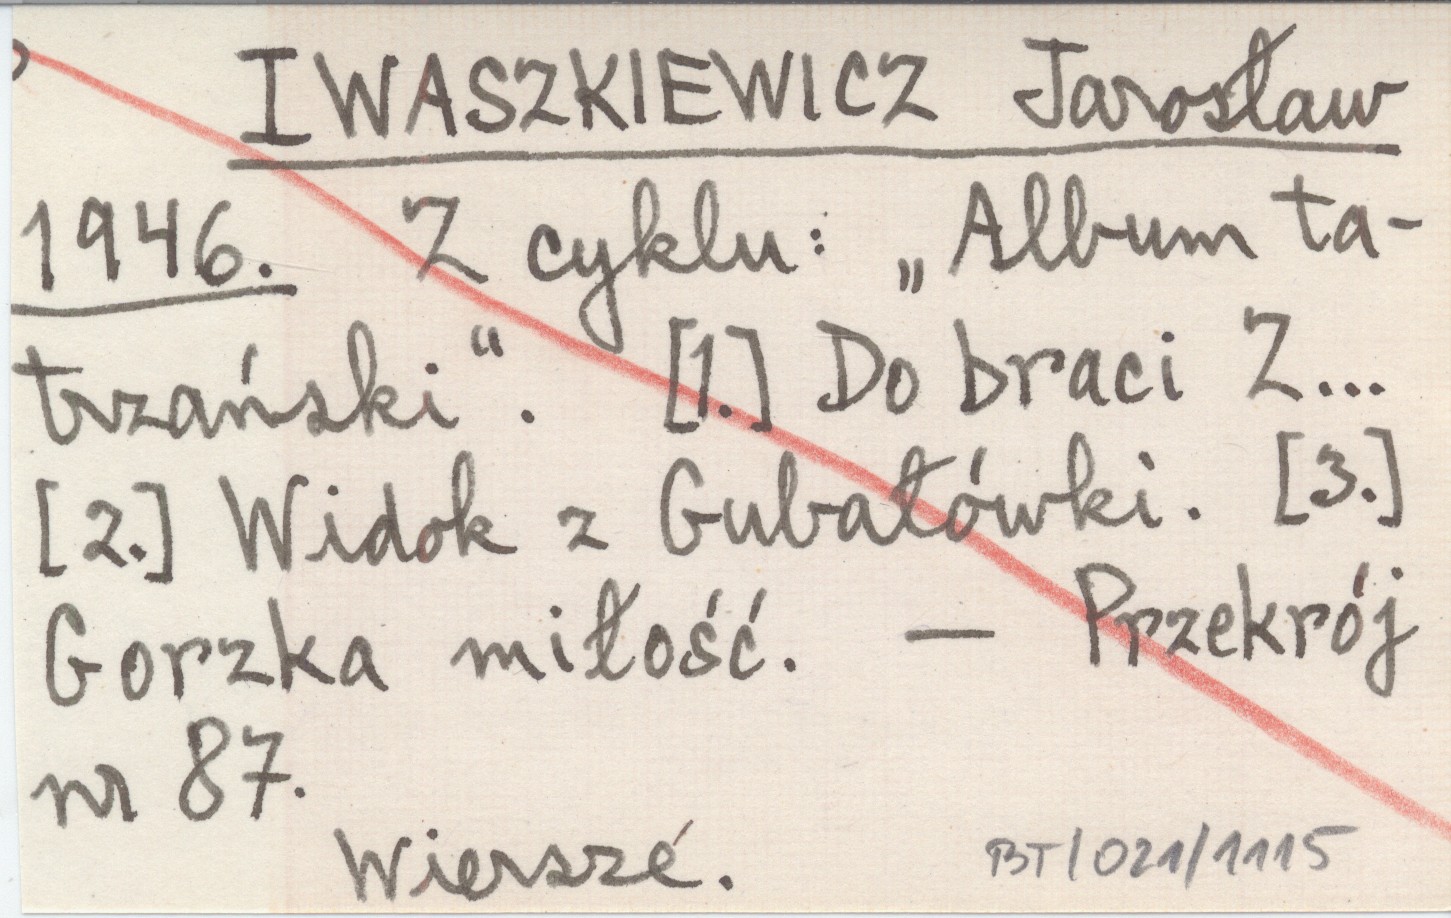 IWASZKIEWICZ Jarosław
1946. Z cyklu: „Album ta-
trzański“. [1.] Do braci Z...
[2.] Widok z Gubałówki. [3.]
Gorzka miłość. — Przekrój
nr 87.
Wiersze.
BT/021/1115